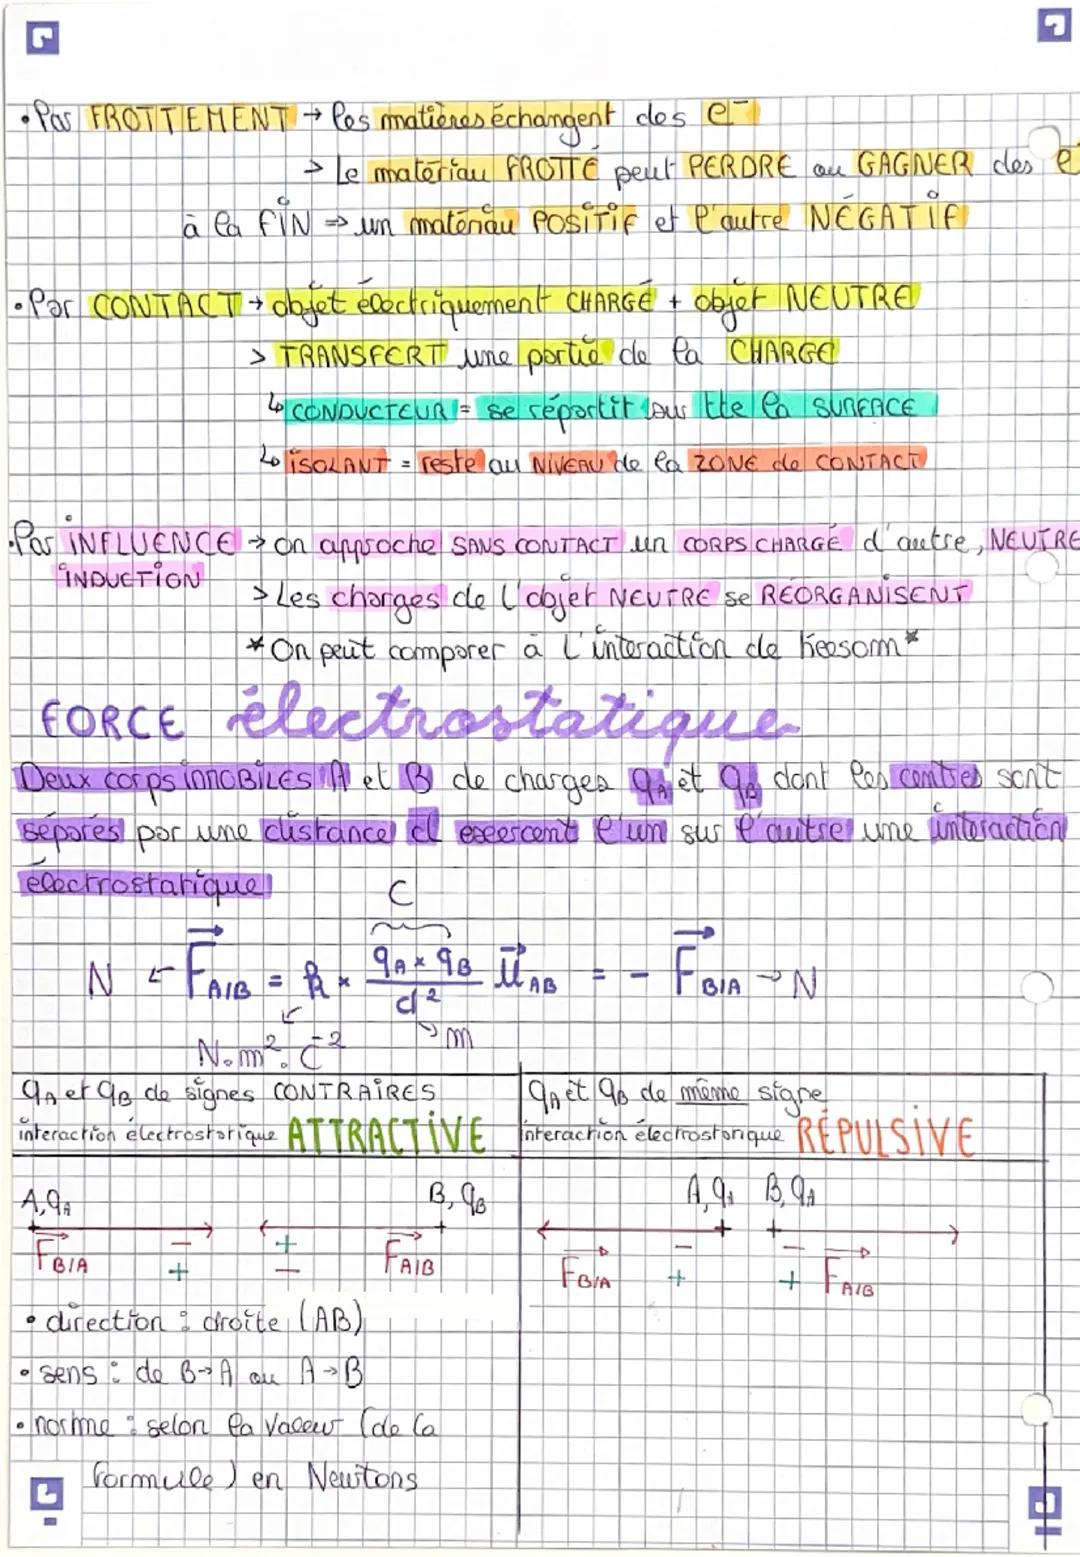 • Par FROTTEMENT → les matières échangent des e⁻
> Le matériau FROTTÉ peut PERDRE ou GAGNER des e⁻
à la FIN ⇒ un matériau POSITIF et l'autre NÉGATIF
• Par CONTACT → objet électriquement CHARGÉ + objet NEUTRE
> TRANSFERT une partie de la CHARGE
↳ CONDUCTEUR = se répartit sur tte la SURFACE
↳ ISOLANT = reste au NIVEAU de la ZONE de CONTACT
• Par INFLUENCE → on approche SANS CONTACT un CORPS CHARGÉ d'autre, NEUTRE
INDUCTION
> Les charges de l'objet NEUTRE se RÉORGANISENT
* On peut comparer à l'interaction de Keesom *
FORCE électrostatique
Deux corps IMMOBILES A et B de charges qA et qB dont les centres sont
séparés par une distance d exercent l'un sur l'autre une interaction
électrostatique
C
N ← F⃗A/B = k × (qA × qB / d²) u⃗AB = - F⃗B/A → N
N.m².C⁻² m
qA et qB de signes CONTRAIRES
interaction électrostatique ATTRACTIVE
A, qA B, qB
F⃗B/A - + F⃗A/B
+ -
• direction : droite (AB)
• sens : de B→A ou A→B
• norme : selon la valeur (de la
formule) en Newtons
qA et qB de même signe
interaction électrostatique RÉPULSIVE
A, qA B, qA
F⃗B/A - - F⃗A/B
+ +